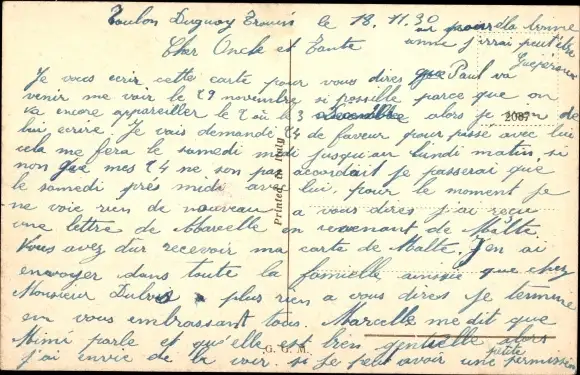 Toulon Duguay Trouin le 18.11.30
Cher Oncle et Tante
Je vous écrir cette carte pour vous dires que Paul va
venir me voir le 29 novembre si possible parce que on
va encore appareiller le 2 où le 3 décembre alors je de
lui ecrire. Je vais demandé 24 de faveur pour passé avec lui
cela me fera le samedi midi jusqu'au lundi matin, si
non que mes 24 ne son pas accordait je passerai que
le samedi près midi avec lui. pour le moment je
ne voie rien de nouveau a vous dires j'ai reçu
une lettre de Marcelle en revenant de Malte.
Vous avez dur recevoir ma carte de Malte. J'en ai
envoyer dans toute la famielle ainsie que chez
Monsieur plus rien a vous dires je termine
en vous embrassant tous. Marcelle me dit que
Mimi parle et qu'elle est bien gentielle alors
j'ai envie de la voir. si je peu avoir une petite permission
au pour la bonne
année j'irrai peut être
Printed in Italy
2087
G. G. M.